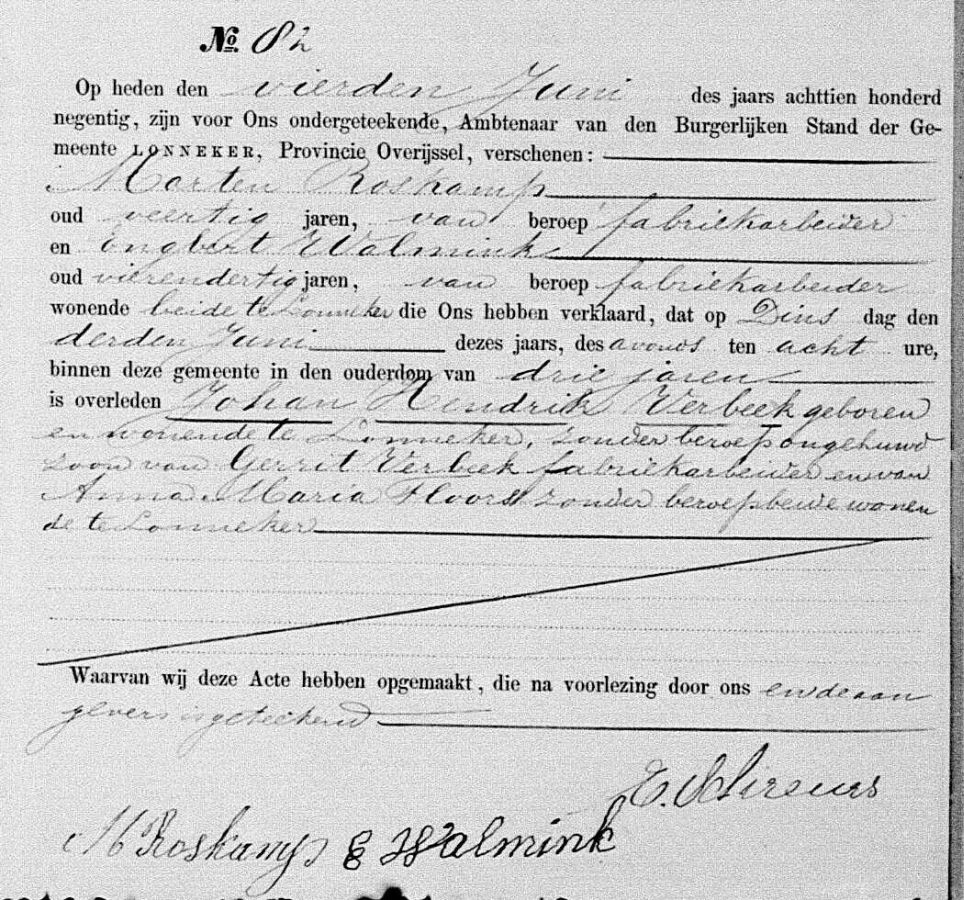 No. 82
Op heden den vierden Juni des jaars achttien honderd
negentig, zijn voor Ons ondergeteekende, Ambtenaar van den Burgerlijken Stand der Ge-
meente LONNEKER, Provincie Overijssel, verschenen:
Marten Roskamp
oud veertig jaren, van beroep fabriekarbeider
en Engbert Walmink
oud vierendertig jaren, van beroep fabriekarbeider
wonende beide te Lonneker die Ons hebben verklaard, dat op Dins dag den
derden Juni dezes jaars, des avonds ten acht ure,
binnen deze gemeente in den ouderdom van drie jaren
is overleden Johan Hendrik Verbeek geboren
en wonende te Lonneker, zonder beroep ongehuwd
zoon van Gerrit Verbeek fabriekarbeider en van
Anna Maria Floors zonder beroep beide wonen
de te Lonneker
Waarvan wij deze Acte hebben opgemaakt, die na voorlezing door ons en de aan
gevers is geteekend
E.
M Roskamp E Walmink